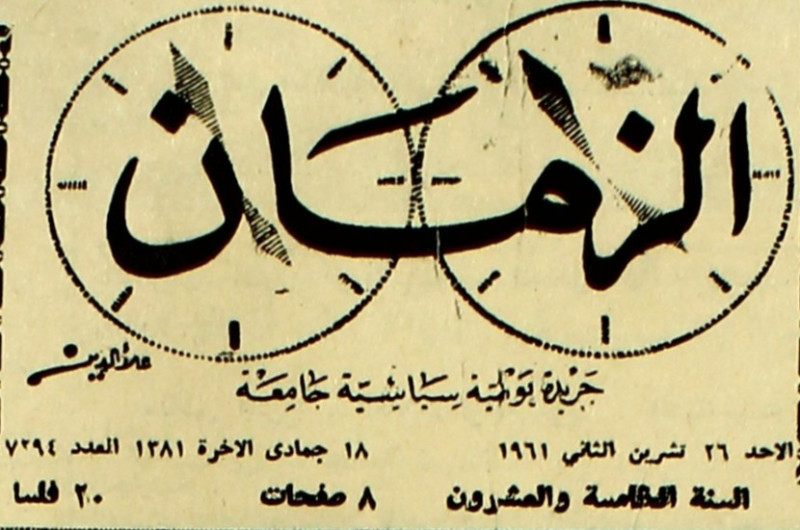 الزمان
علاء الدين
جريدة يومية سياسية جامعة
الاحد ٢٦ تشرين الثاني ١٩٦١ ١٨ جمادى الاخرة ١٣٨١ العدد ٧٢٩٤
السنة الخامسة والعشرون ٨ صفحات ٢٠ فلسا